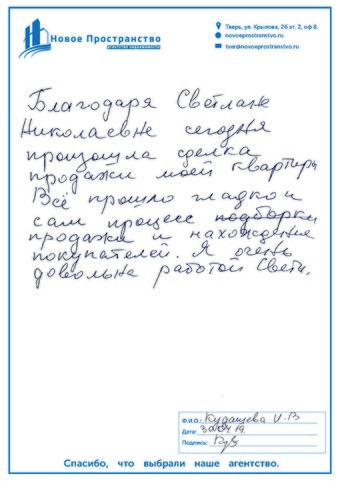 Новое Пространство
агентство недвижимости
Тверь, ул. Крылова, 26 эт. 2, оф 8.
novoeprostranstvo.ru
tver@novoeprostranstvo.ru
Благодаря Светлане
Николаевне сегодня
произошла сделка
продажи моей квартиры
Всё прошло гладко и
сам процесс подборки
продажи и нахождения
покупателей. Я очень
довольна работой Светы.
Ф.И.О.: Кудашева И.В
Дата: 30.04 19
Подпись:
Спасибо, что выбрали наше агентство.